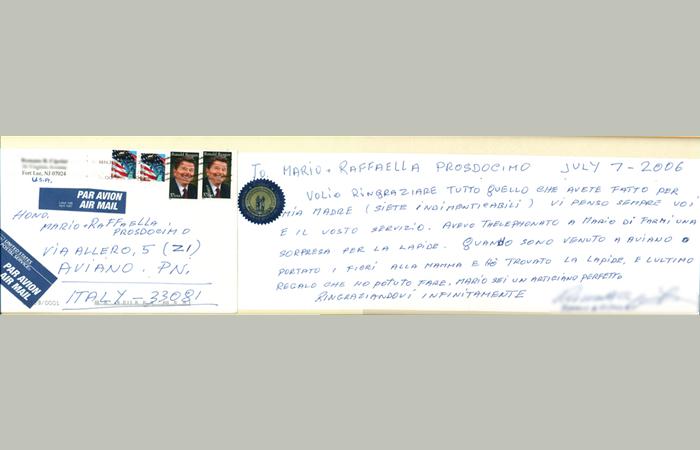 Fort Lee, NJ 07024
U.S.A.
PAR AVION
AIR MAIL
HONO.
MARIO + RAFFAELLA
PROSDOCIMO
VIA ALLERO, 5 (Z1)
AVIANO. PN.
ITALY - 33081
UNITED STATES
POSTAL SERVICE
PAR AVION
AIR MAIL
TO MARIO + RAFFAELLA PROSDOCIMO JULY 7 - 2006
VOLIO RINGRAZIARE TUTTO QUELLO CHE AVETE FATTO PER
MIA MADRE (SIETE INDIMENTICABILI) VI PENSO SEMPRE VOI
E IL VOSTO SERVIZIO. AVEVO THELEPHONATO A MARIO DI FARMI UNA
SORPRESA PER LA LAPIDE. QUANDO SONO VENUTO A AVIANO O
PORTATO I FIORI ALLA MAMMA E HÒ TROVATO LA LAPIDE, E L'ULTIMO
REGALO CHE HO POTUTO FARE, MARIO SEI UN ARTICIANO PERFETTO
RINGRAZIANDOVI INFINITAMENTE